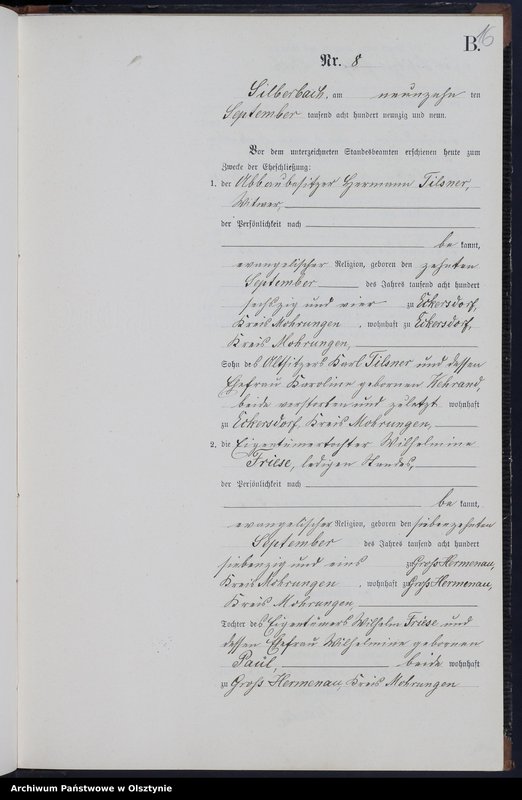 B.
16
Nr. 8
Silberbach, am neunzehn ten
September tausend acht hundert neunzig und neun.
Vor dem unterzeichneten Standesbeamten erschienen heute zum
Zwecke der Eheschließung:
1. der Abbaubesitzer Hermann Tilsner,
Witwer,
der Persönlichkeit nach
be kannt,
evangelischer Religion, geboren den zehnten
September des Jahres tausend acht hundert
sechszig und vier zu Eckersdorf,
Kreis Mohrungen, wohnhaft zu Eckersdorf,
Kreis Mohrungen,
Sohn des Altsitzers Karl Tilsner und dessen
Ehefrau Karoline gebornen
beide verstorben und zuletzt wohnhaft
zu Eckersdorf, Kreis Mohrungen,
2. die Eigentümertochter Wilhelmine
Friese, ledigen Standes,
der Persönlichkeit nach
be kannt,
evangelischer Religion, geboren den siebenzehnten
September des Jahres tausend acht hundert
siebenzig und eins zu Groß Hermenau,
Kreis Mohrungen, wohnhaft zu Groß Hermenau,
Kreis Mohrungen
Tochter des Eigentümers Wilhelm Friese und
dessen Ehefrau Wilhelmine gebornen
Paul, beide wohnhaft
zu Groß Hermenau, Kreis Mohrungen
Archiwum Państwowe w Olsztynie